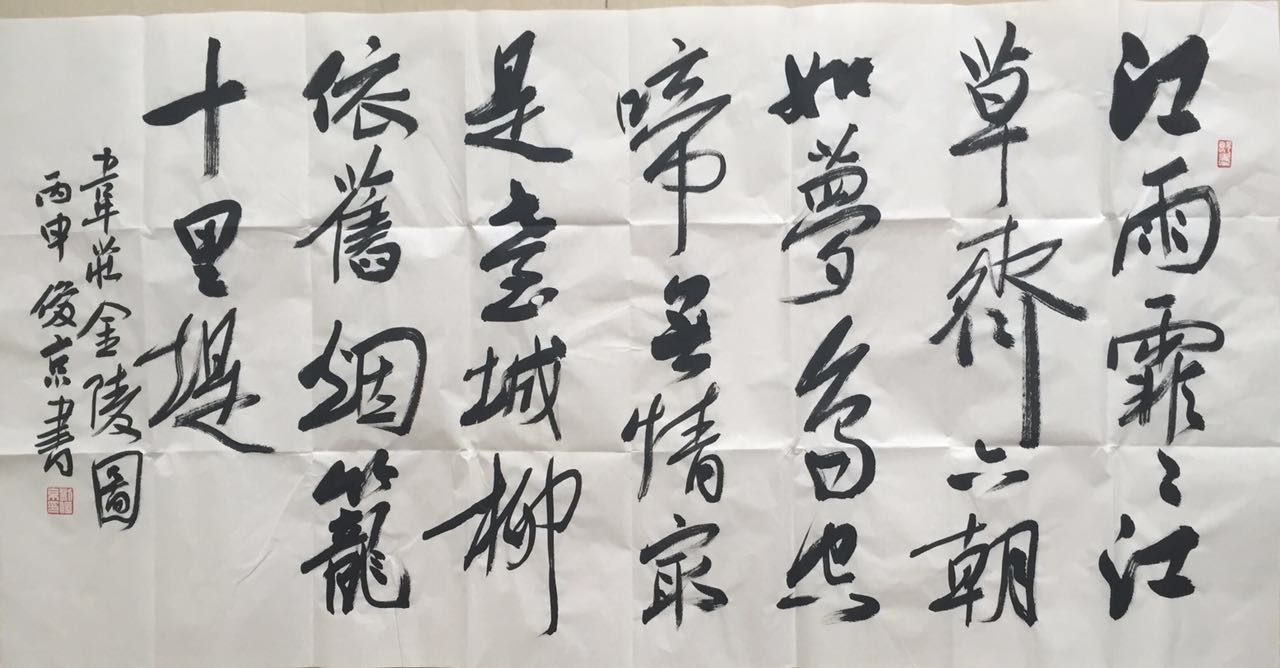 江雨霏々江
草齊六朝
如夢鳥空
啼無情最
是臺城柳
依舊烟籠
十里堤
韋莊金陵圖
丙申俊京書